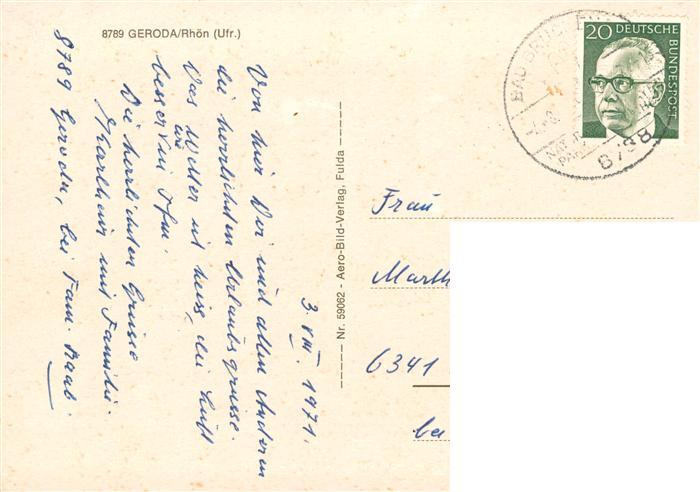 8789 GERODA/Rhön (Ufr.)
3. VIII. 1971.
Von hier Dir und allen Anderen
die herzlichsten Urlaubsgrüsse.
Das Wetter ist heiss, die Luft
besser wie
Die herzlichsten Grüsse
Karlheinz mit Familie.
8789 Geroda, bei Fam. Raab.
Nr. 59062 - Aero-Bild-Verlag, Fulda
20 DEUTSCHE
BUNDESPOST
BAD BRÜ
8788
Frau
Marth
6341
be